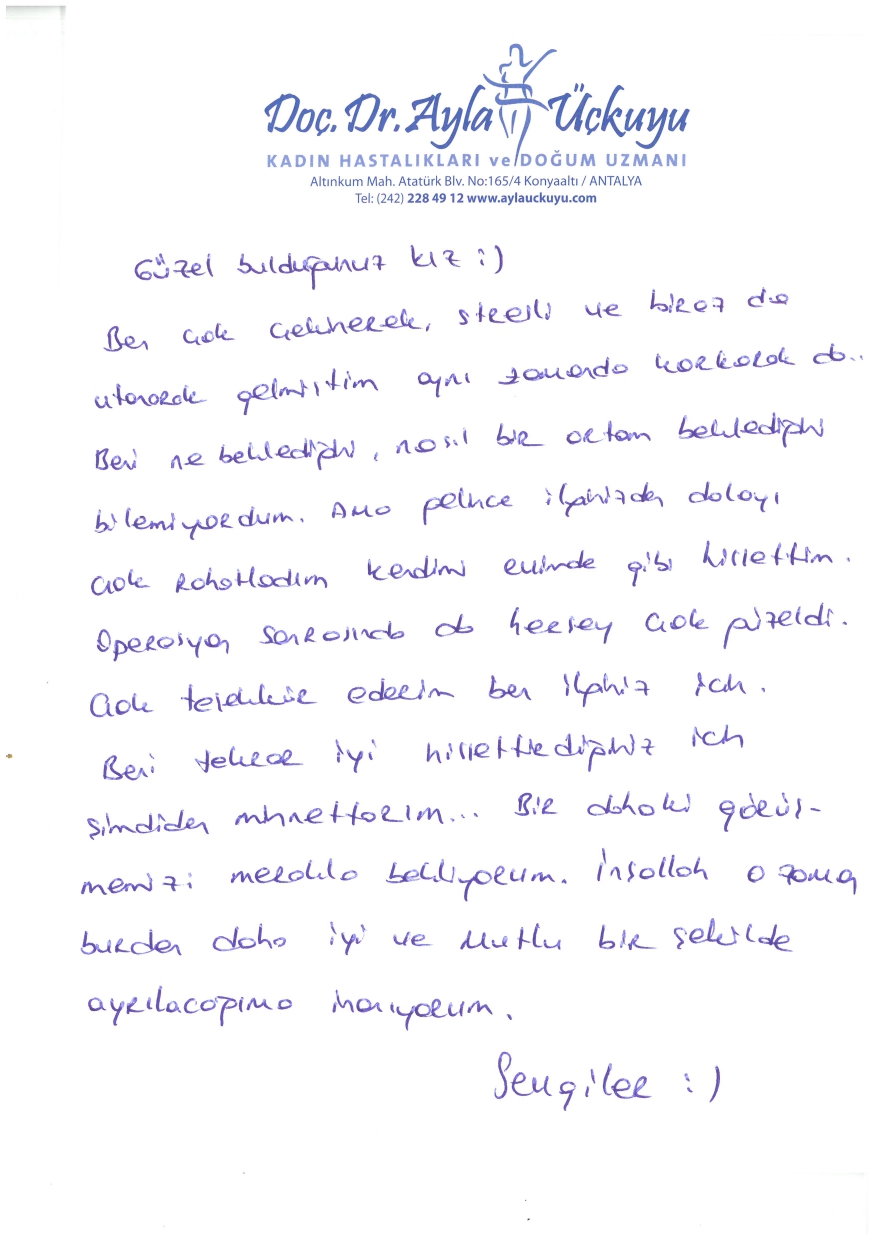 Doç. Dr. Ayla Üçkuyu
KADIN HASTALIKLARI ve DOĞUM UZMANI
Altınkum Mah. Atatürk Blv. No:165/4 Konyaaltı / ANTALYA
Tel: (242) 228 49 12 www.aylauckuyu.com
Güzel bulduğunuz kız :)
Ben çok çekinerek, stresli ve biraz da
utanarak gelmiştim aynı zamanda korkarak da..
Beni ne beklediğini, nasıl bir ortam beklediğini
bilemiyordum. Ama gelince ilginizden dolayı
çok rahatladım kendimi evimde gibi hissettim.
Operasyon sonrasında da herşey çok güzeldi.
Çok teşekkür ederim ben ilginiz için.
Beni tekrar iyi hissettirdiğiniz için
şimdiden minnettarım... Bir dahaki görüş-
memizi merakla bekliyorum. İnşallah o zaman
burdan daha iyi ve mutlu bir şekilde
ayrılacağıma inanıyorum.
Sevgiler :)